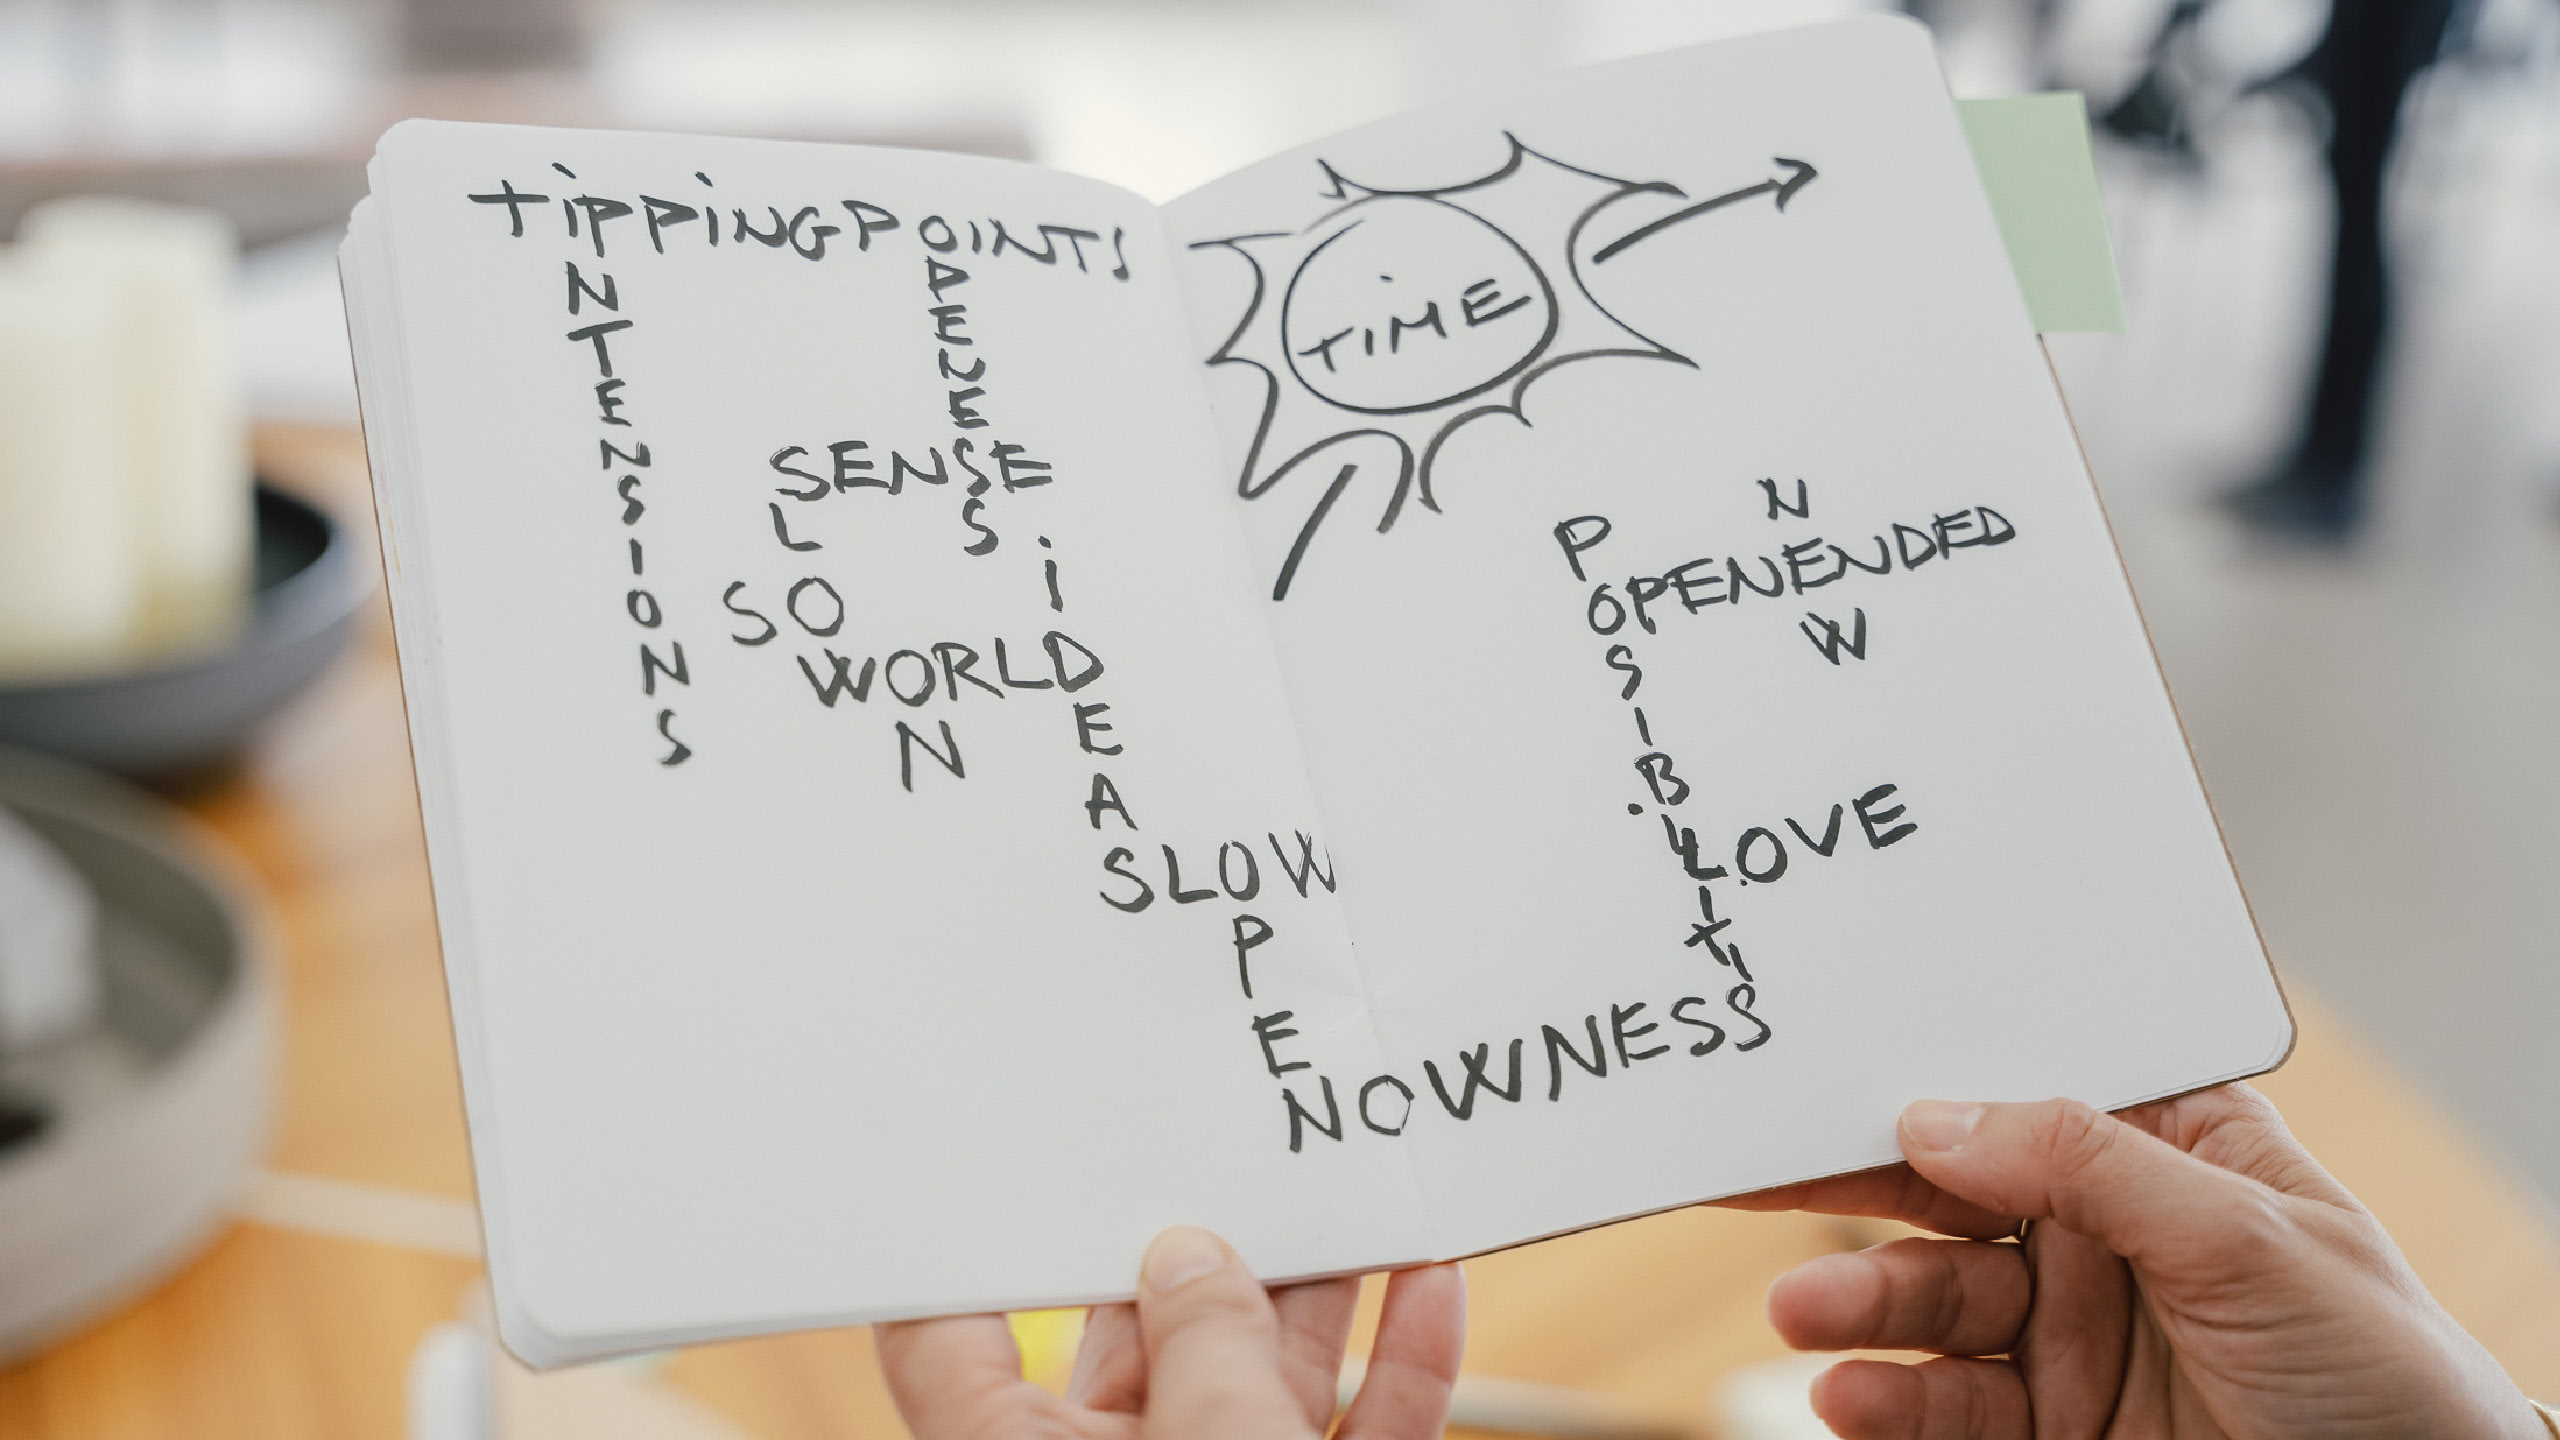 TIPPINGPOINTS
INTENSIONS
OPENESS
SENSE
SLOW
SO
WORLD
ON
IDEAS
SLOW
OPEN
NOWNESS
TIME
OPENENDED
NEW
LOVE